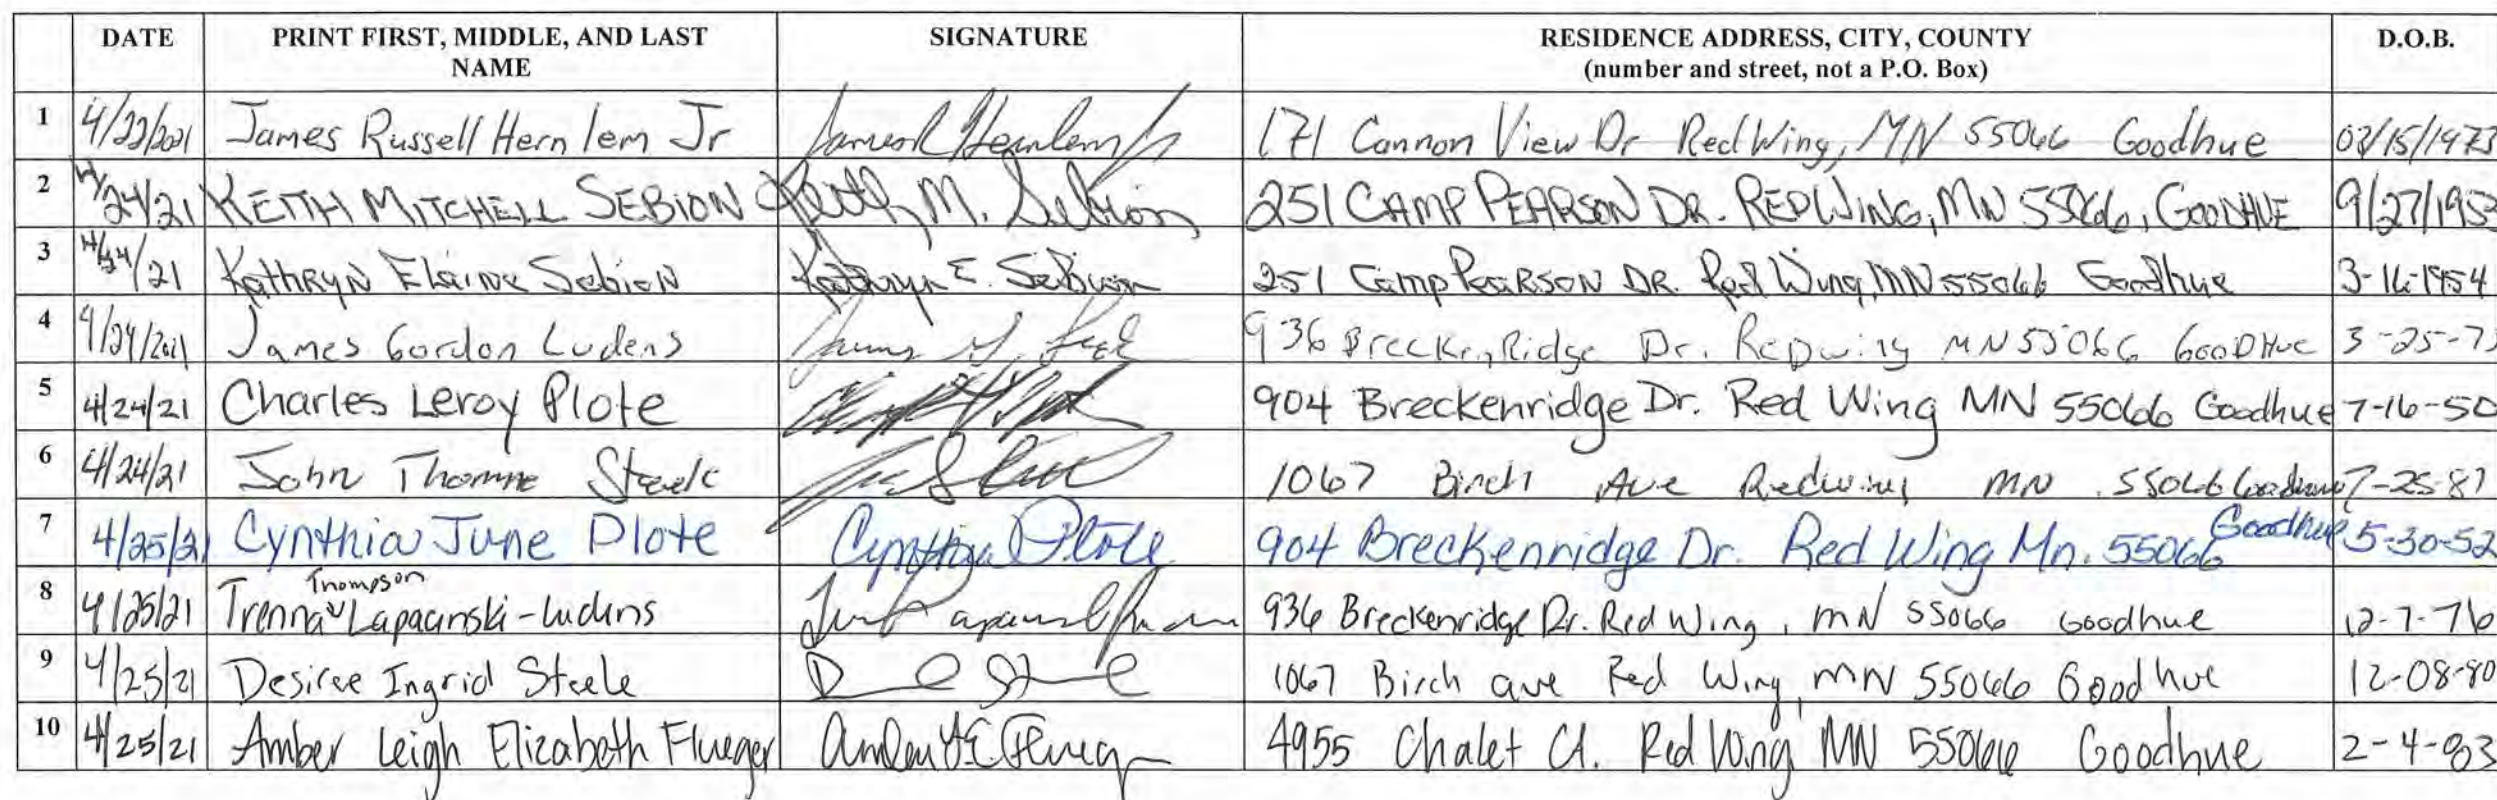 DATE PRINT FIRST, MIDDLE, AND LAST NAME SIGNATURE RESIDENCE ADDRESS, CITY, COUNTY (number and street, not a P.O. Box) D.O.B.
1 4/22/2021 James Russell Hernlem Jr James R Hernlem Jr 171 Cannon View Dr Red Wing, MN 55066 Goodhue 02/15/1973
2 4/24/21 KEITH MITCHELL SEBION Keith M. Sebion 251 CAMP PEARSON DR. RED WING, MN 55066, GOODHUE 9/27/195
3 4/24/21 Kathryn Elaine Sebion Kathryn E. Sebion 251 Camp Pearson DR. Red Wing, MN 55066 Goodhue 3-16-1954
4 4/24/2021 James Gordon Ludens 936 Breckenridge Dr. Redwing MN 55066 GooDHue 3-25-7
5 4/24/21 Charles Leroy Plote 904 Breckenridge Dr. Red Wing MN 55066 Goodhue 7-16-50
6 4/24/21 John Steele 1067 Birch Ave Redwing MN 55066 Goodhue 7-25-81
7 4/25/21 Cynthia June Plote Cynthia Plote 904 Breckenridge Dr. Red Wing Mn. 55066 Goodhue 5-30-52
8 4/25/21 Trenna Thompson Lapacinski-Ludens 936 Breckenridge Dr. Red Wing, MN 55066 Goodhue 12-7-76
9 4/25/21 Desiree Ingrid Steele D Steele 1067 Birch ave Red Wing, MN 55066 Goodhue 12-08-80
10 4/25/21 Amber Leigh Elizabeth Flueger 4955 Chalet Ct. Red Wing MN 55066 Goodhue 2-4-83